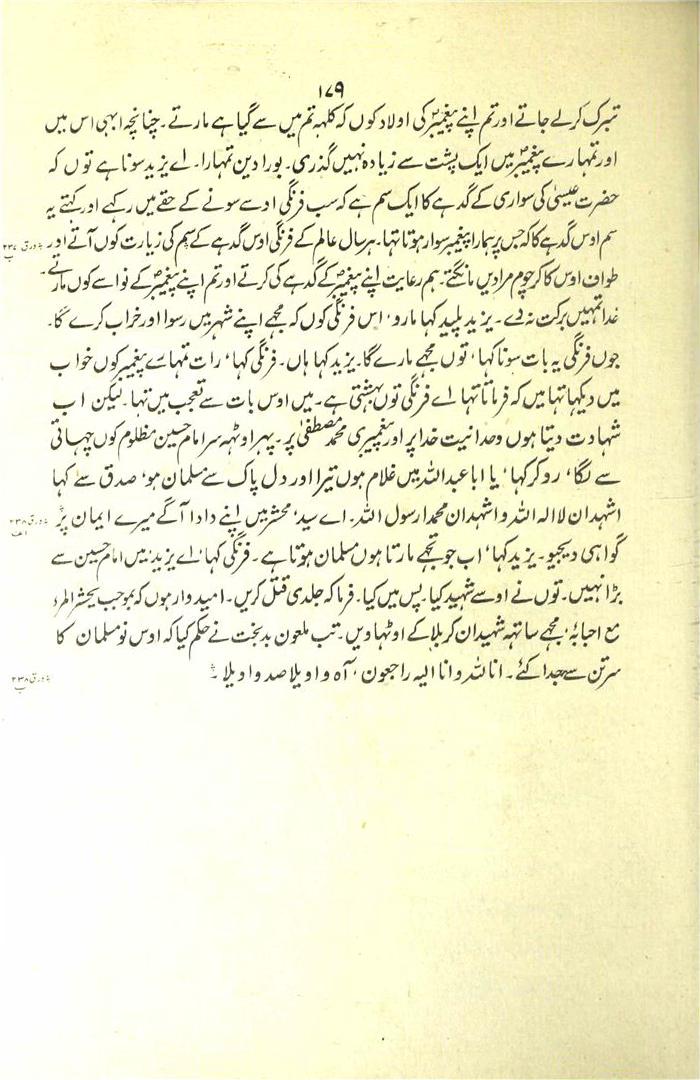 ۱۷۹
تبرک کر لے جاتے اور تم اپنے پیغمبرؐ کی اولاد کوں کہ کلہم تم میں سے گیا ہے مارتے۔ چنانچہ ابہی اس میں
اور تمہارے پیغمبرؐ میں ایک پشت سے زیادہ نہیں گذری۔ بورا دین تمہارا۔ اے یزید سونا ہے توں کہ
حضرت عیسیٰ کی سواری کے گدہے کا ایک سم ہے کہ سب فرنگی اوسے سونے کے حقے میں رکہے اور کہتے یہ
سم اوس گدہے کا کہ جس پر ہمارا پیغمبر سوار ہوتا تہا۔ ہر سال عالم کے فرنگی اوس گدہے کے سم کی زیارت کوں آتے اور
طواف اوس کا کر چوم مرادیں مانگتے۔ ہم رعایت اپنے پیغمبرؐ کے گدہے کی کرتے اور تم اپنے پیغمبرؐ کے نواسے کوں مارتے۔
خدا تمہیں برکت نہ دے۔ یزید پلید کہا مارو، اس فرنگی کوں کہ مجہے اپنے شہر میں رسوا اور خراب کرے گا۔
جوں فرنگی یہ بات سونا کہا، توں مجہے مارے گا۔ یزید کہا ہاں۔ فرنگی کہا، رات تمہارے پیغمبر کوں خواب
میں دیکہا تہا میں کہ فرماتا تہا اے فرنگی توں بہشتی ہے۔ میں اوس بات سے تعجب میں تہا۔ لیکن اب
شہادت دیتا ہوں وحدانیت خدا پر اور پیغمبری محمد مصطفیٰ پر۔ پہر اوٹہہ سر امام حسین مظلوم کوں چہاتی
سے لگا، رو کر کہا، یا ابا عبد اللہ میں غلام ہوں تیرا اور دل پاک سے مسلمان ہو، صدق سے کہا
اشہد ان لا الہ اللہ و اشہد ان محمدا رسول اللہ۔ اے سید، محشر میں اپنے دادا آگے میرے ایمان پر
گواہی دیجیو۔ یزید کہا، اب جو تجہے مارتا ہوں مسلمان ہوتا ہے۔ فرنگی کہا، اے یزید، میں امام حسین سے
بڑا نہیں۔ توں نے اوسے شہید کیا۔ پس میں کیا۔ فرما کہ جلدی قتل کریں۔ امیدوار ہوں کہ بموجب یحشر المرء
مع احبابہٖ، مجہے ساتہہ شہیدان کربلا کے اوٹہاویں۔ تب ملعون بدبخت نے حکم کیا کہ اوس نو مسلمان کا
سر تن سے جدا کئے۔ انا للہ و انا الیہ راجعون، آہ و اویلا صد واویلا۔
ورق ۲۳۷ ب
ورق ۲۳۸ الف
ورق ۲۳۸ ب